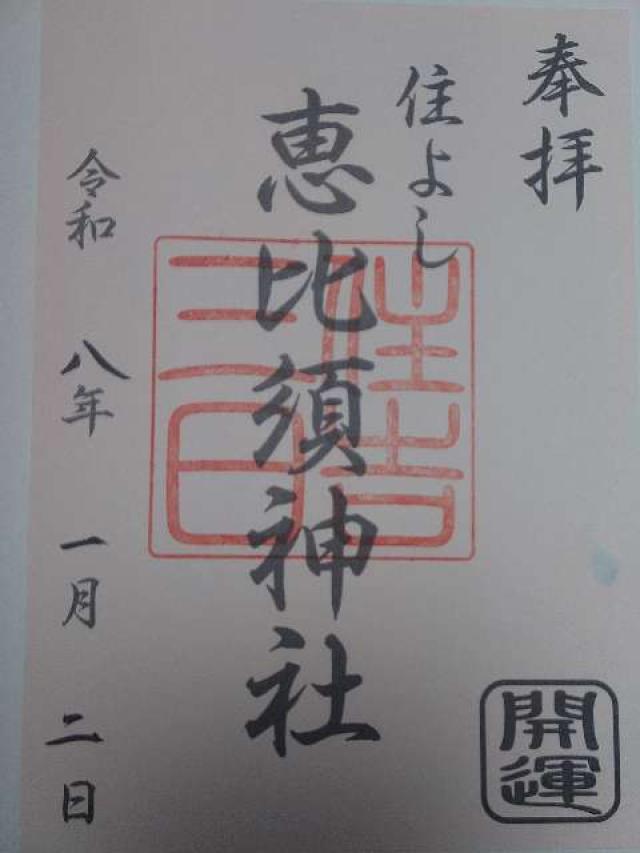 奉拝
開運
住よし
恵比須神社
住吉
三日
令和 八年 一月 二日